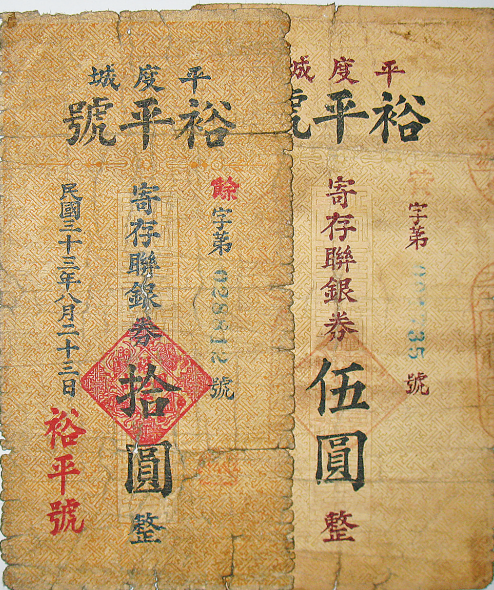 平度城
裕平號
餘字第
號
寄存聯銀券拾圓整
民國三十三年八月二十三日
裕平號
平度城
裕平號
字第
35號
寄存聯銀券伍圓整